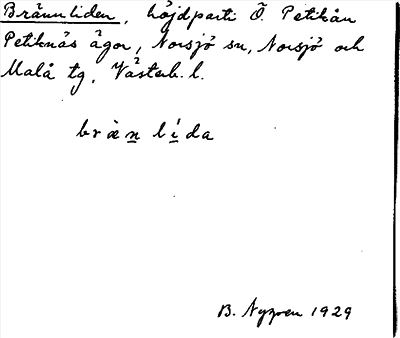 Brännliden, höjdparti Ö. Petikån
Petiknäs ägor, Norsjö sn, Norsjö och
Malå tg, Västerb. l.
bræ̀n lí̱da
B. Nygren 1929